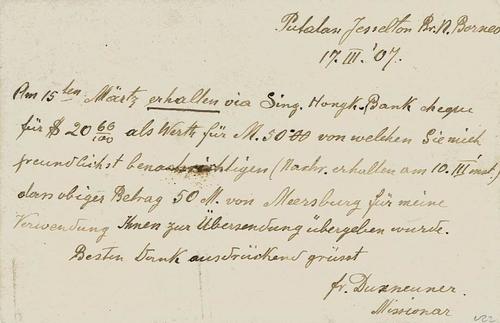 Putalan Jesselton Br. N. Borneo
17. III. '07.
Am 15ten Märtz erhalten via Sing. Hongk. Bank cheque
für $ 20 60/100 als Werth für M. 50.00 von welchen Sie mich
freundlichst benachrichtigen (Nachr. erhalten am 10. III
dass obiger Betrag 50 M. von Meersburg für meine
Verwendung Ihnen zur Übersendung übergeben wurde.
Besten Dank ausdrückend grüsst
fr. Duxneuner.
Missionar